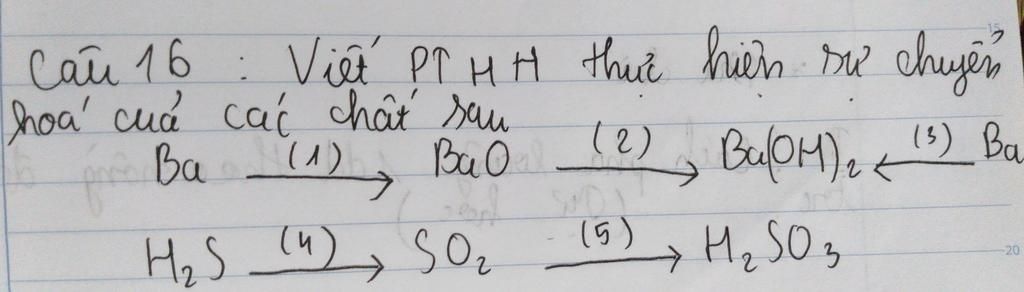 Câu 16 : Viết PTHH thực hiện sự chuyển
hoá của các chất sau
Ba (1)→ BaO (2)→ Ba(OH)₂ ←(3) Ba
H₂S (4)→ SO₂ (5)→ H₂SO₃